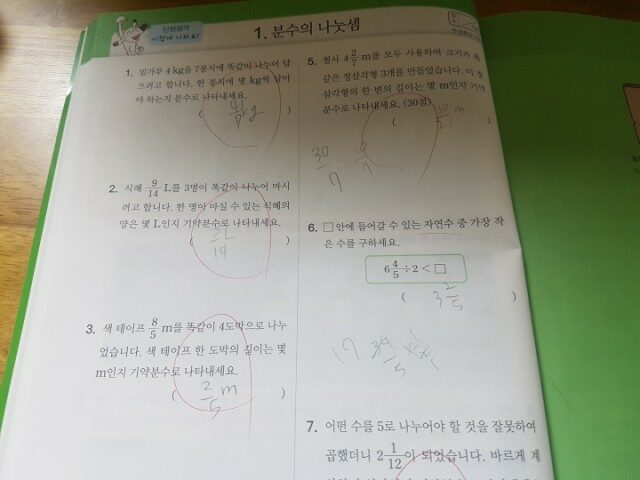 단원평가
이렇게 나와요!
1. 분수의 나눗셈
1. 밀가루 4 kg을 7봉지에 똑같이 나누어 담
으려고 합니다. 한 봉지에 몇 kg씩 담아
야 하는지 분수로 나타내세요.
( 4/7 kg )
2. 식혜 9/14 L를 3명이 똑같이 나누어 마시
려고 합니다. 한 명이 마실 수 있는 식혜의
양은 몇 L인지 기약분수로 나타내세요.
( 3/14 )
3. 색 테이프 8/5 m를 똑같이 4도막으로 나누
었습니다. 색 테이프 한 도막의 길이는 몇
m인지 기약분수로 나타내세요.
( 2/5 m )
5. 철사 4 2/7 m를 모두 사용하여 크기가 똑
같은 정삼각형 3개를 만들었습니다. 이 정
삼각형의 한 변의 길이는 몇 m인지 기약
분수로 나타내세요. (30점)
( 10/21 m
30/7
6. □ 안에 들어갈 수 있는 자연수 중 가장 작
은 수를 구하세요.
6 4/5 ÷ 2 < □
( 3 2/5 )
17 34/5
7. 어떤 수를 5로 나누어야 할 것을 잘못하여
곱했더니 2 1/12이 되었습니다. 바르게 계